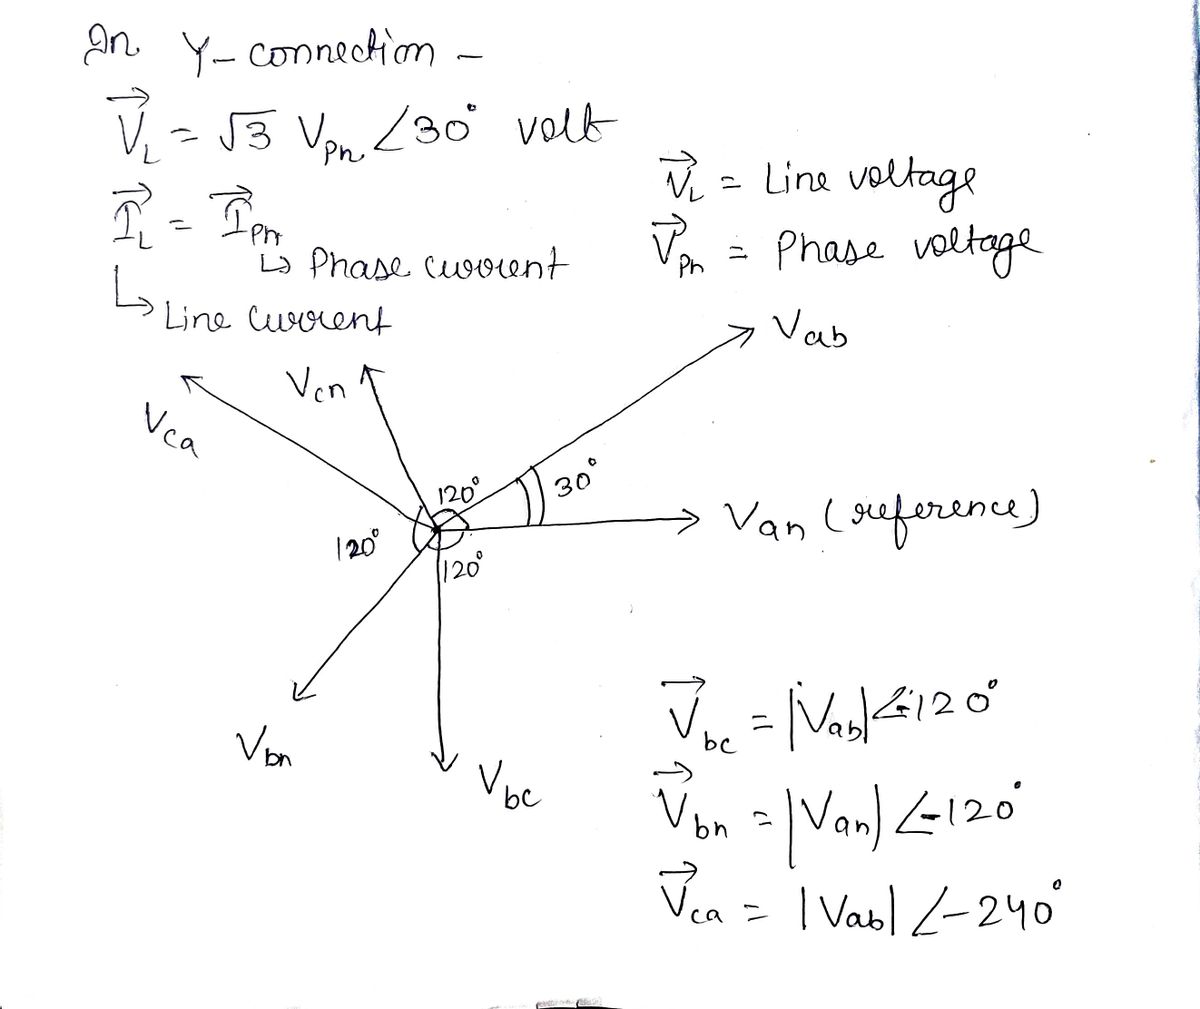 In Y-connection -
V⃗_L = √3 V_Ph ∠30° volt
I⃗_L = I⃗_Ph
↳ Phase current
↳ Line current
V⃗_L = Line voltage
V⃗_Ph = Phase voltage
V_ab
V_cn
V_ca
120°
30°
V_an (reference)
120°
120°
V_bn
V_bc
V⃗_bc = |V_ab| ∠-120°
V⃗_bn = |V_an| ∠-120°
V⃗_ca = |V_ab| ∠-240°